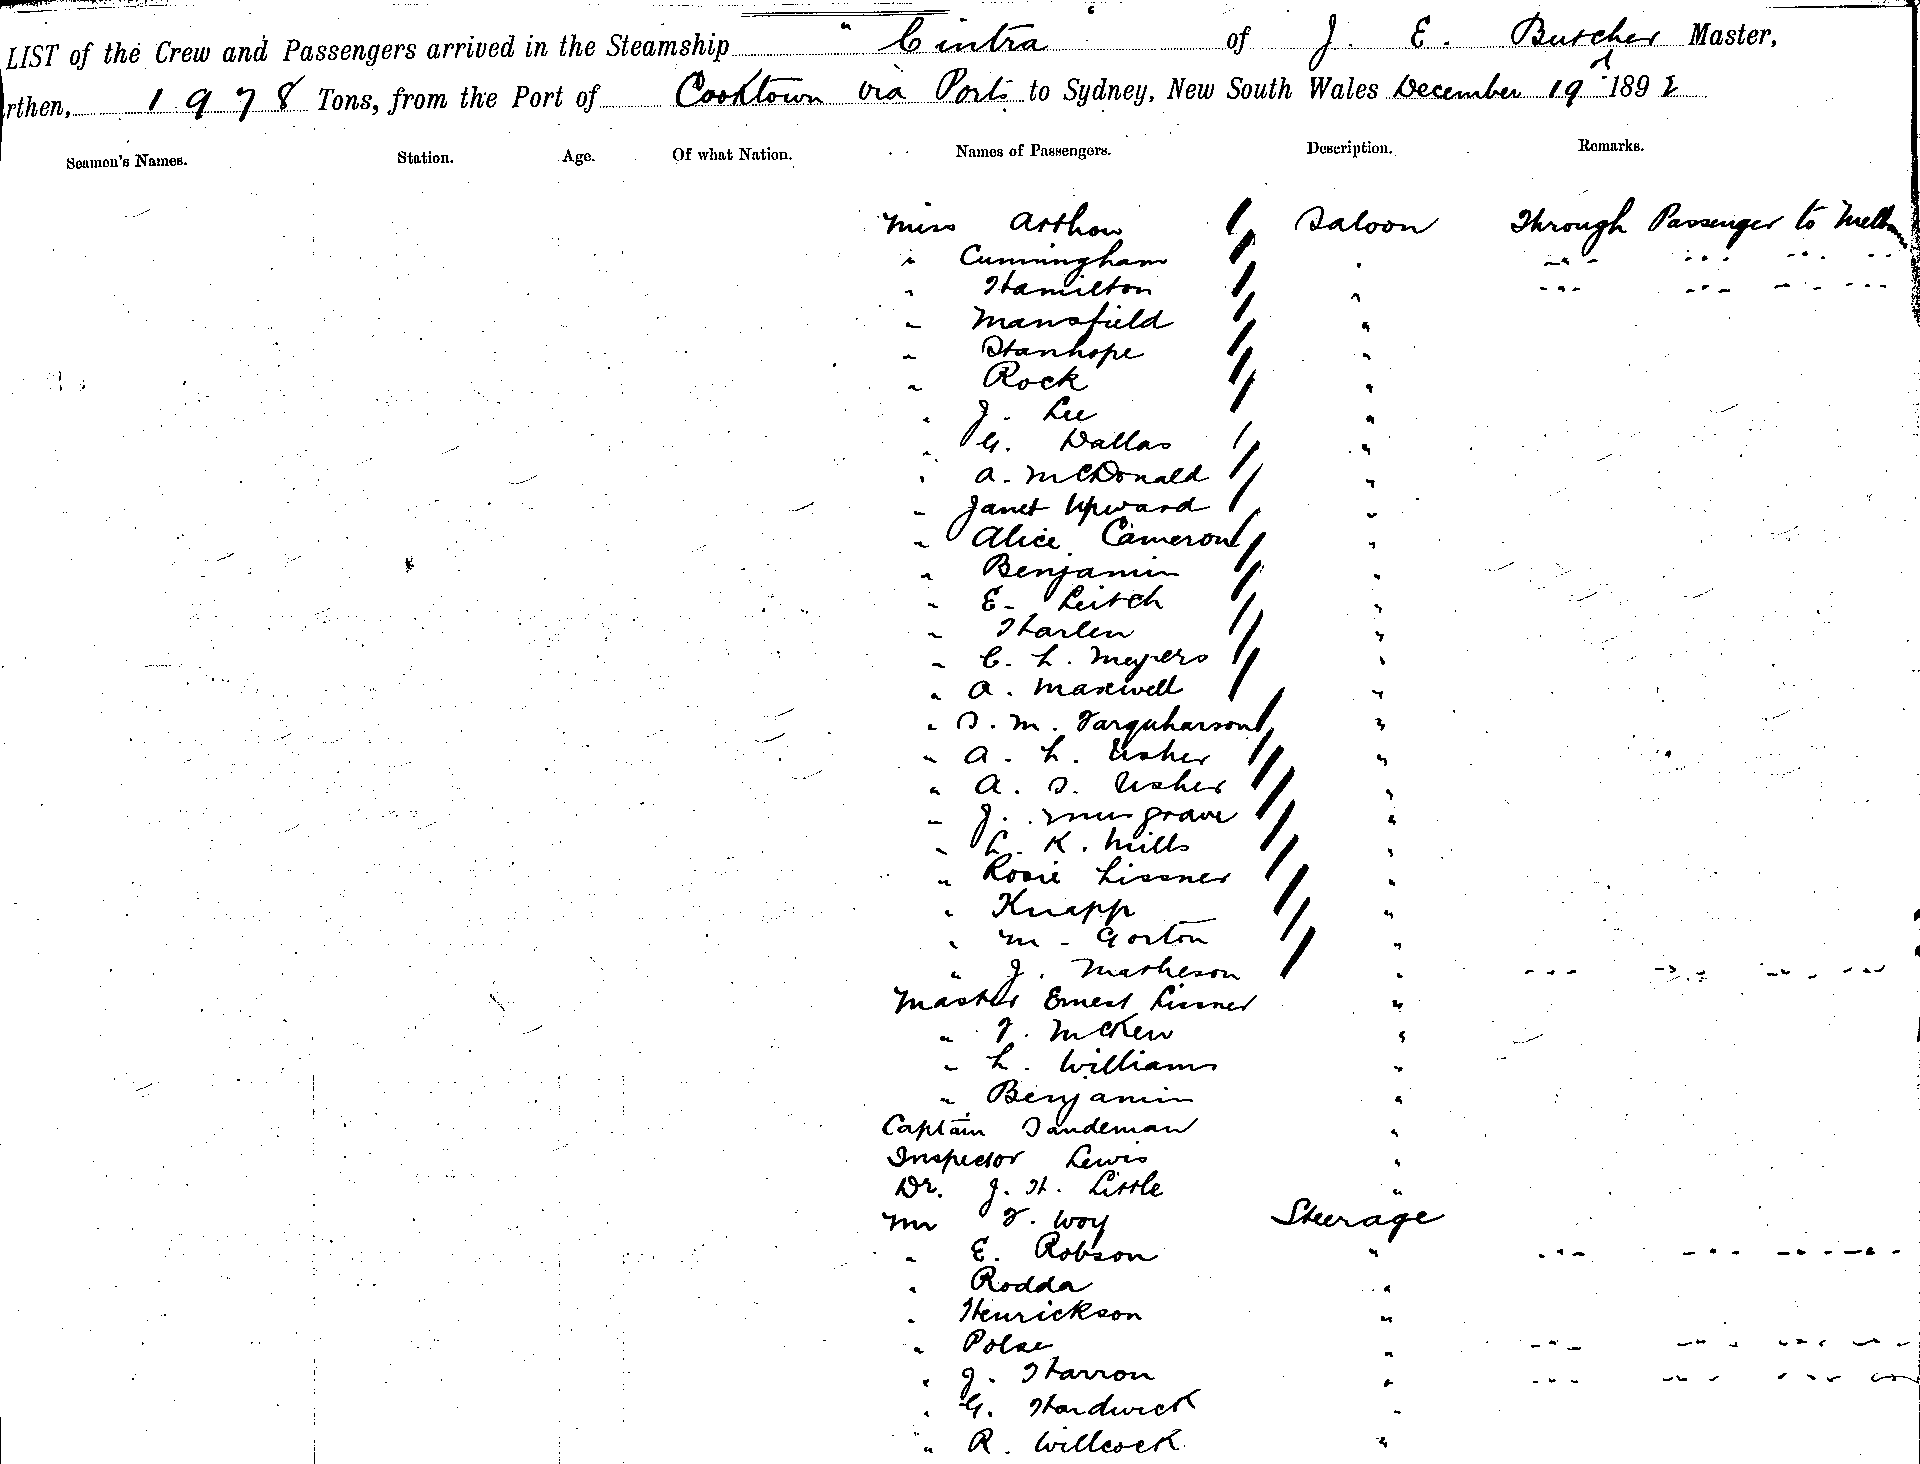 LIST of the Crew and Passengers arrived in the Steamship "Cintra" of J. E. Butcher Master,
rthen, 1978 Tons, from the Port of Cooktown via Ports to Sydney, New South Wales December 19 1892
Seamen's Names. Station. Age. Of what Nation. Names of Passengers. Description. Remarks.
Miss Arthow Saloon Through Passenger to Melb
" Cunningham " " " " "
" Hamilton " " " " "
" Mansfield "
" Stanhope "
" Rock "
" J. Lee "
" G. Dallas "
" A. McDonald "
" Janet Upward "
" Alice Cameron "
" Benjamin "
" E. Leitch "
" Harlen "
" C. L. Meyers "
" A. Maxwell "
" S. M. Farquharson "
" A. L. Usher "
" A. S. Usher "
" J. Musgrave "
" L. K. Mills "
" Rosie Lissner "
" Knapp "
" M. Gorton "
" J. Matheson " " " " "
Master Ernest Lissner "
" F. McKew "
" L. Williams "
" Benjamin "
Captain Sandeman "
Inspector Lewis "
Dr. J. H. Little "
Mr F. Woy Steerage
" E. Robson " " " " "
" Rodda "
" Henrickson "
" Polse " " " " "
" J. Harron " " " " "
" G. Hardwick "
" R. Willcock "